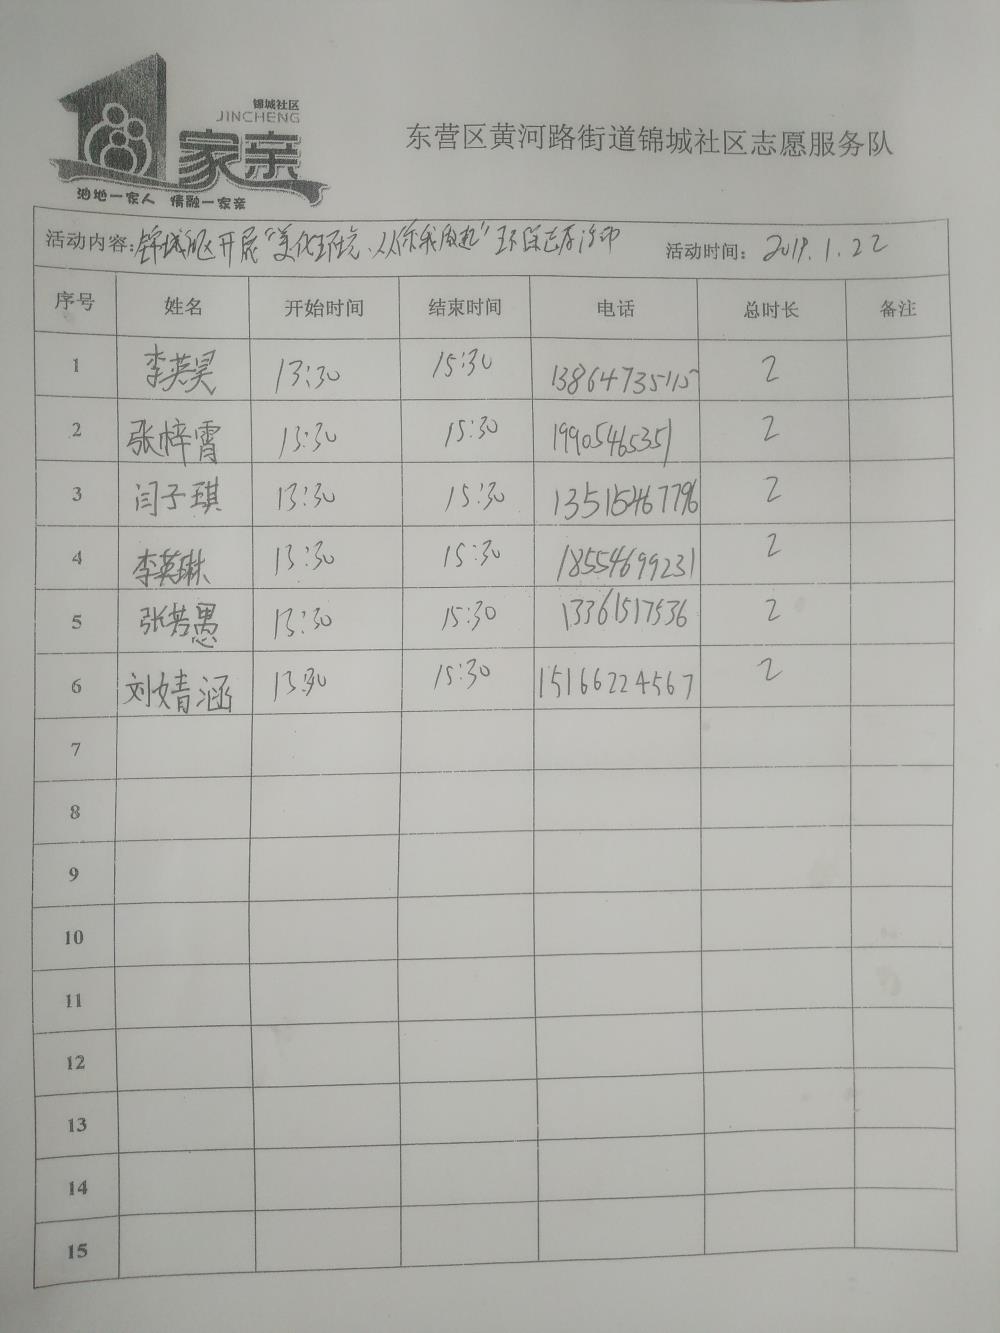 锦城社区
JINCHENG
1家亲
油地一家人 情融一家亲
东营区黄河路街道锦城社区志愿服务队
活动内容: 锦城社区开展“美化环境、从你我做起”环保志愿活动 活动时间: 2019.1.22
序号 姓名 开始时间 结束时间 电话 总时长 备注
1 李英昊 13:30 15:30 13864735115 2
2 张梓霄 13:30 15:30 19905465351 2
3 闫子琪 13:30 15:30 13515467796 2
4 李英琳 13:30 15:30 18554699231 2
5 张若愚 13:30 15:30 13361517536 2
6 刘婧涵 13:30 15:30 15166224567 2
7
8
9
10
11
12
13
14
15